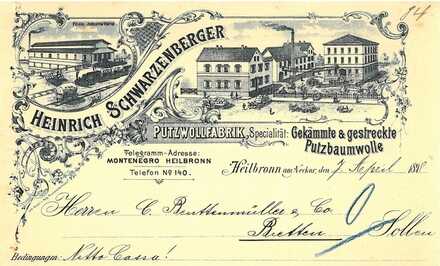 HEINRICH SCHWARZENBERGER
PUTZWOLLFABRIK, Specialität: Gekämmte & gestreckte
Putzbaumwolle
Telegramm-Adresse:
MONTENEGRO HEILBRONN
Telefon No 140.
Heilbronn am Neckar, den 7 April
Herren C. Beuttenmüller & Co.
Bretten
Sollen
Bedingungen: Netto Cassa!